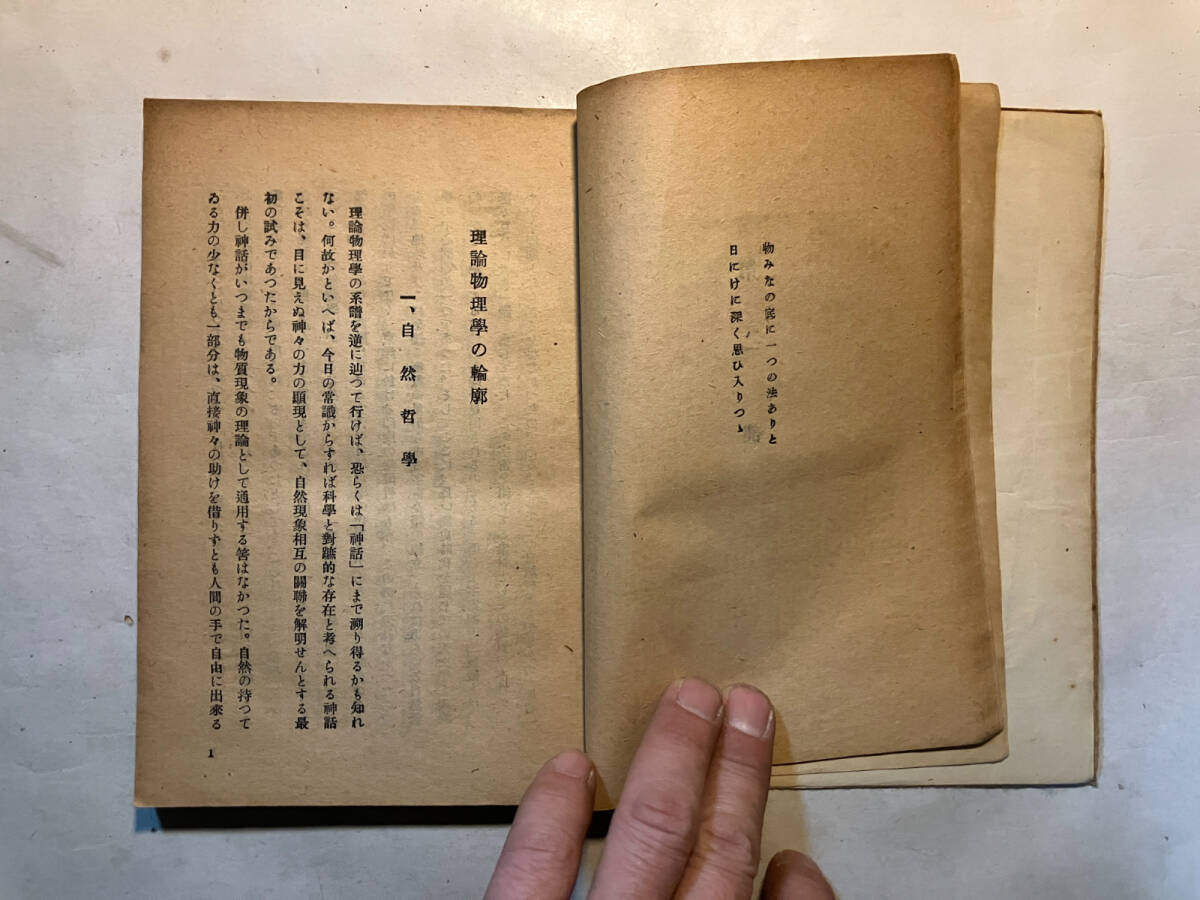 物みなの底に一つの法ありと
日にけに深く思ひ入りつゝ
理論物理學の輪廓
一、自然哲學
理論物理學の系譜を逆に辿つて行けば、恐らくは「神話」にまで溯り得るかも知れ
ない。何故かといへば、今日の常識からすれば科學と對蹠的な存在と考へられる神話
こそは、目に見えぬ神々の力の顯現として、自然現象相互の關聯を解明せんとする最
初の試みであつたからである。
併し神話がいつまでも物質現象の理論として通用する筈はなかつた。自然の持つて
ゐる力の少なくとも一部分は、直接神々の助けを借りずとも人間の手で自由に出來る
1